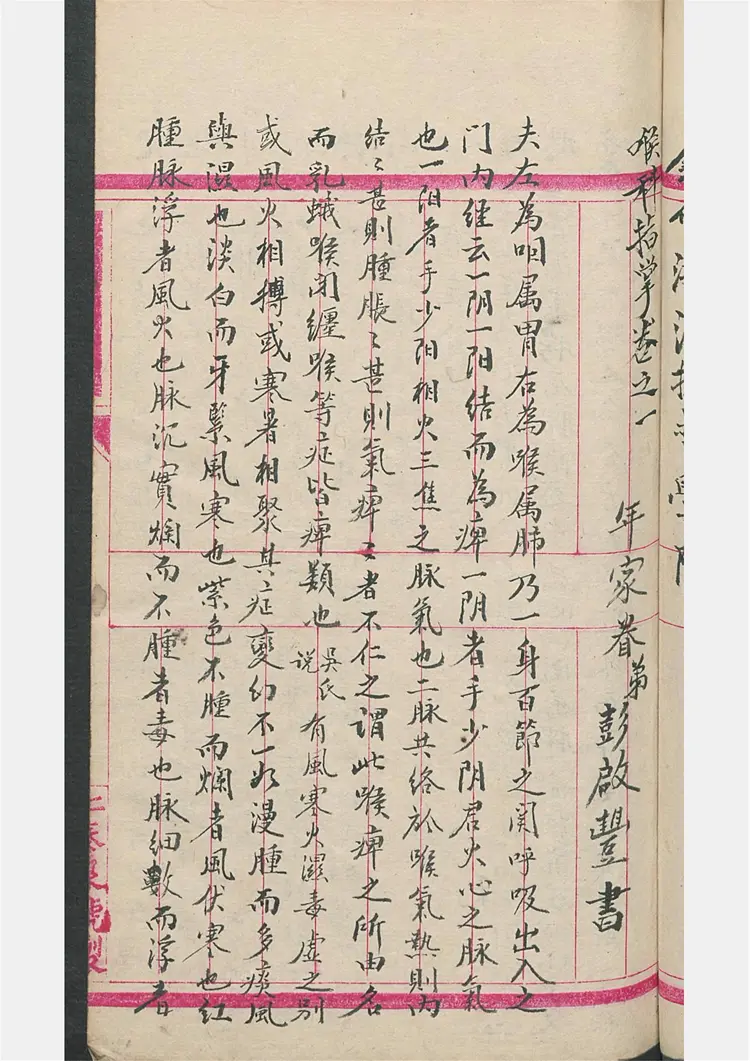 喉科指掌卷之一　年家眷弟彭啟豐書
夫左為咽属胃右為喉属肺乃一身百節之関呼吸出入之
门内經云一阴一阳结而為痺一阴者手少阴君火心之脉氣
也一阳者手少阳相火三焦之脉氣也二脉共络於喉氣熱則内
结〻甚則腫脹〻甚則氣痺〻者不仁之谓此喉痺之所由名
而乳蛾喉闭纏喉等症皆痺類也吳氏说有風寒火濕毒虚之别
或風火相搏或寒暑相聚其症變幻不一如漫腫而多痰風
與濕也淡白而牙緊風寒也紫色不腫而爛者風伏寒也红
腫脉浮者風火也脉沉實爛而不腫者毒也脉细數而浮者